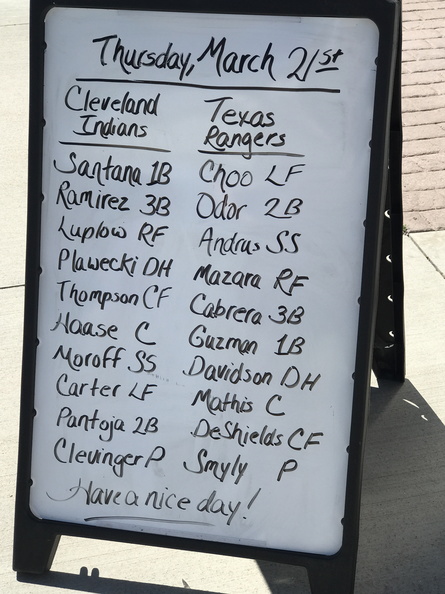 Thursday, March 21st
Cleveland Indians
Santana 1B
Ramirez 3B
Luplow RF
Plawecki DH
Thompson CF
Haase C
Moroff SS
Carter LF
Pantoja 2B
Clevinger P
Texas Rangers
Choo LF
Odor 2B
Andrus SS
Mazara RF
Cabrera 3B
Guzman 1B
Davidson DH
Mathis C
DeShields CF
Smyly P
Have a nice day!